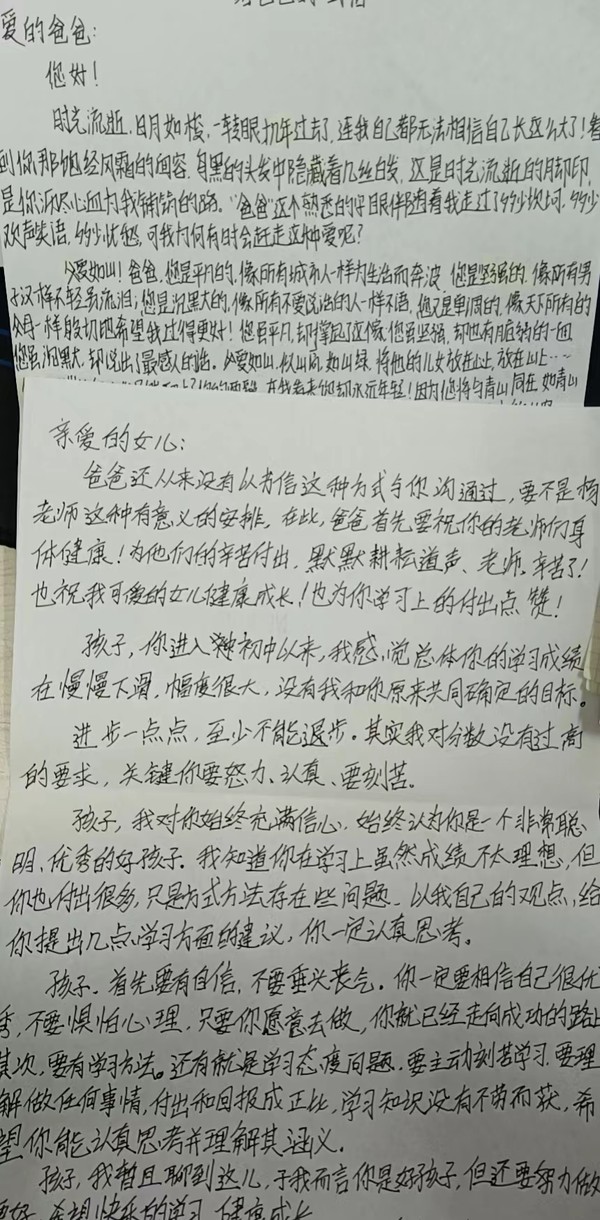 爱的爸爸：
您好！
时光流逝，日月如梭，一转眼功年过去了，连我自己都无法相信自己长这么大了！看
到你那饱经风霜的面容，乌黑的头发中隐藏着几丝白发，这是时光流逝的脚印，
是你沥尽心血为我铺筑的路。“爸爸”这个熟悉的字眼伴随着我走过了多少坎坷，多少
欢声笑语，多少忧愁，可我为何有时会赶走这种爱呢？
父爱如山！爸爸，您是平凡的，像所有城市人一样为生活而奔波，您是坚强的，像所有男
子汉一样不轻易流泪；您是沉默的，像所有不爱说话的人一样不语，您又是单调的，像天下所有的
父母一样殷切地希望我过得更好！您虽平凡，却
您虽坚强，却也有脆弱的一面
您虽沉默，却说出了最感人的话。父爱如山，似山高，如山绿，将他的儿女放在山上，放在山上……
在我看来您却永远年轻！因为您将与青山同在，如青山
亲爱的女儿：
爸爸还从来没有以书信这种方式与你沟通过，要不是杨
老师这种有意义的安排。在此，爸爸首先要祝你的老师们身
体健康！为他们的辛苦付出，默默耕耘道声、老师，辛苦了！
也祝我可爱的女儿健康成长！也为你学习上的付出点赞！
孩子，你进入初中以来，我感觉总体你的学习成绩
在慢慢下滑，幅度很大，没有我和你原来共同确定的目标。
进步一点点，至少不能退步。其实我对分数没有过高
的要求，关键你要努力、认真、要刻苦。
孩子，我对你始终充满信心，始终认为你是一个非常聪
明、优秀的好孩子。我知道你在学习上虽然成绩不太理想，但
你也付出很多，只是方式方法存在些问题。以我自己的观点，给
你提出几点学习方面的建议，你一定认真思考。
孩子，首先要有自信，不要垂头丧气。你一定要相信自己很优
秀，不要惧怕心理，只要你愿意去做，你就已经走向成功的路上
其次，要有学习方法。还有就是学习态度问题，要主动刻苦学习，要理
解做任何事情，付出和回报成正比，学习知识没有不劳而获，希
望你能认真思考并理解其涵义。
孩子，我暂且聊到这儿，于我而言你是好孩子，但还要努力做
更好，希望快乐的学习，健康成长